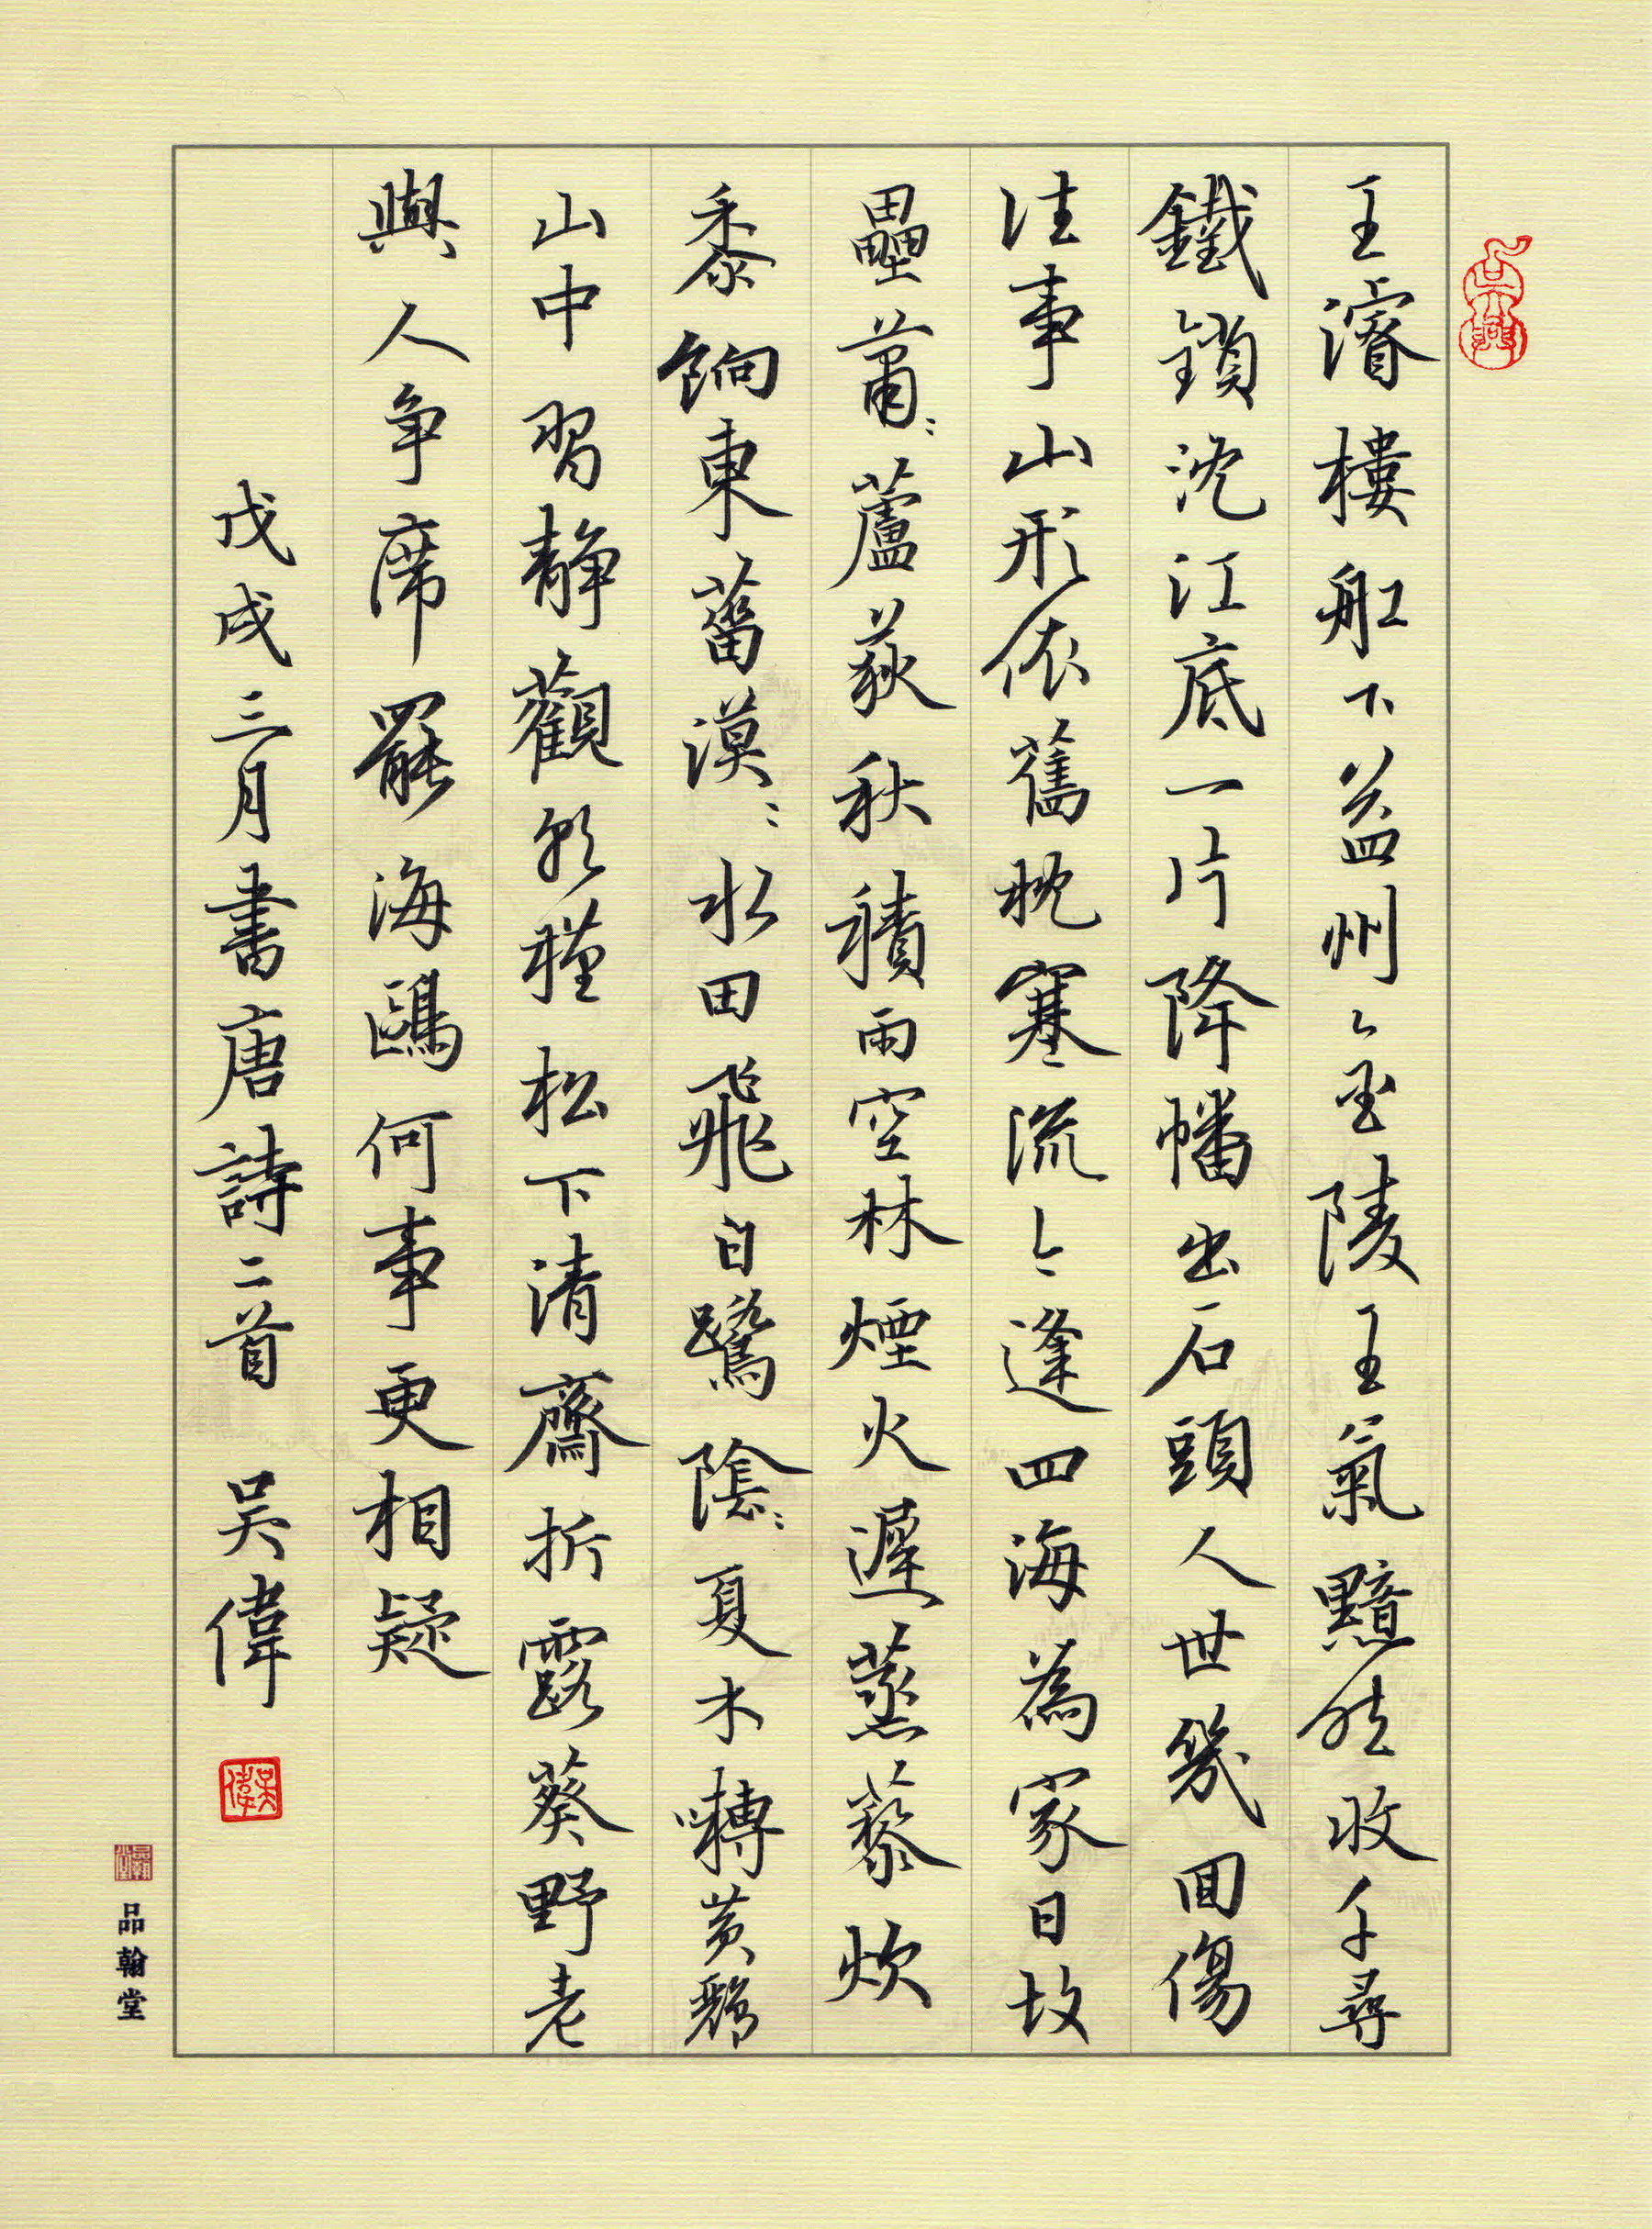 王濬樓船下益州々金陵王氣黯然收千尋
鐵鎖沈江底一片降幡出石頭人世幾回傷
往事山形依舊枕寒流々逢四海為家日故
壘蕭〻蘆荻秋積雨空林煙火遲蒸藜炊
黍餉東菑漠〻水田飛白鷺陰〻夏木囀黃鸝
山中習靜觀朝槿松下清齋折露葵野老
與人爭席罷海鷗何事更相疑
戊戌三月書唐詩二首 吳偉
吳偉
品翰堂